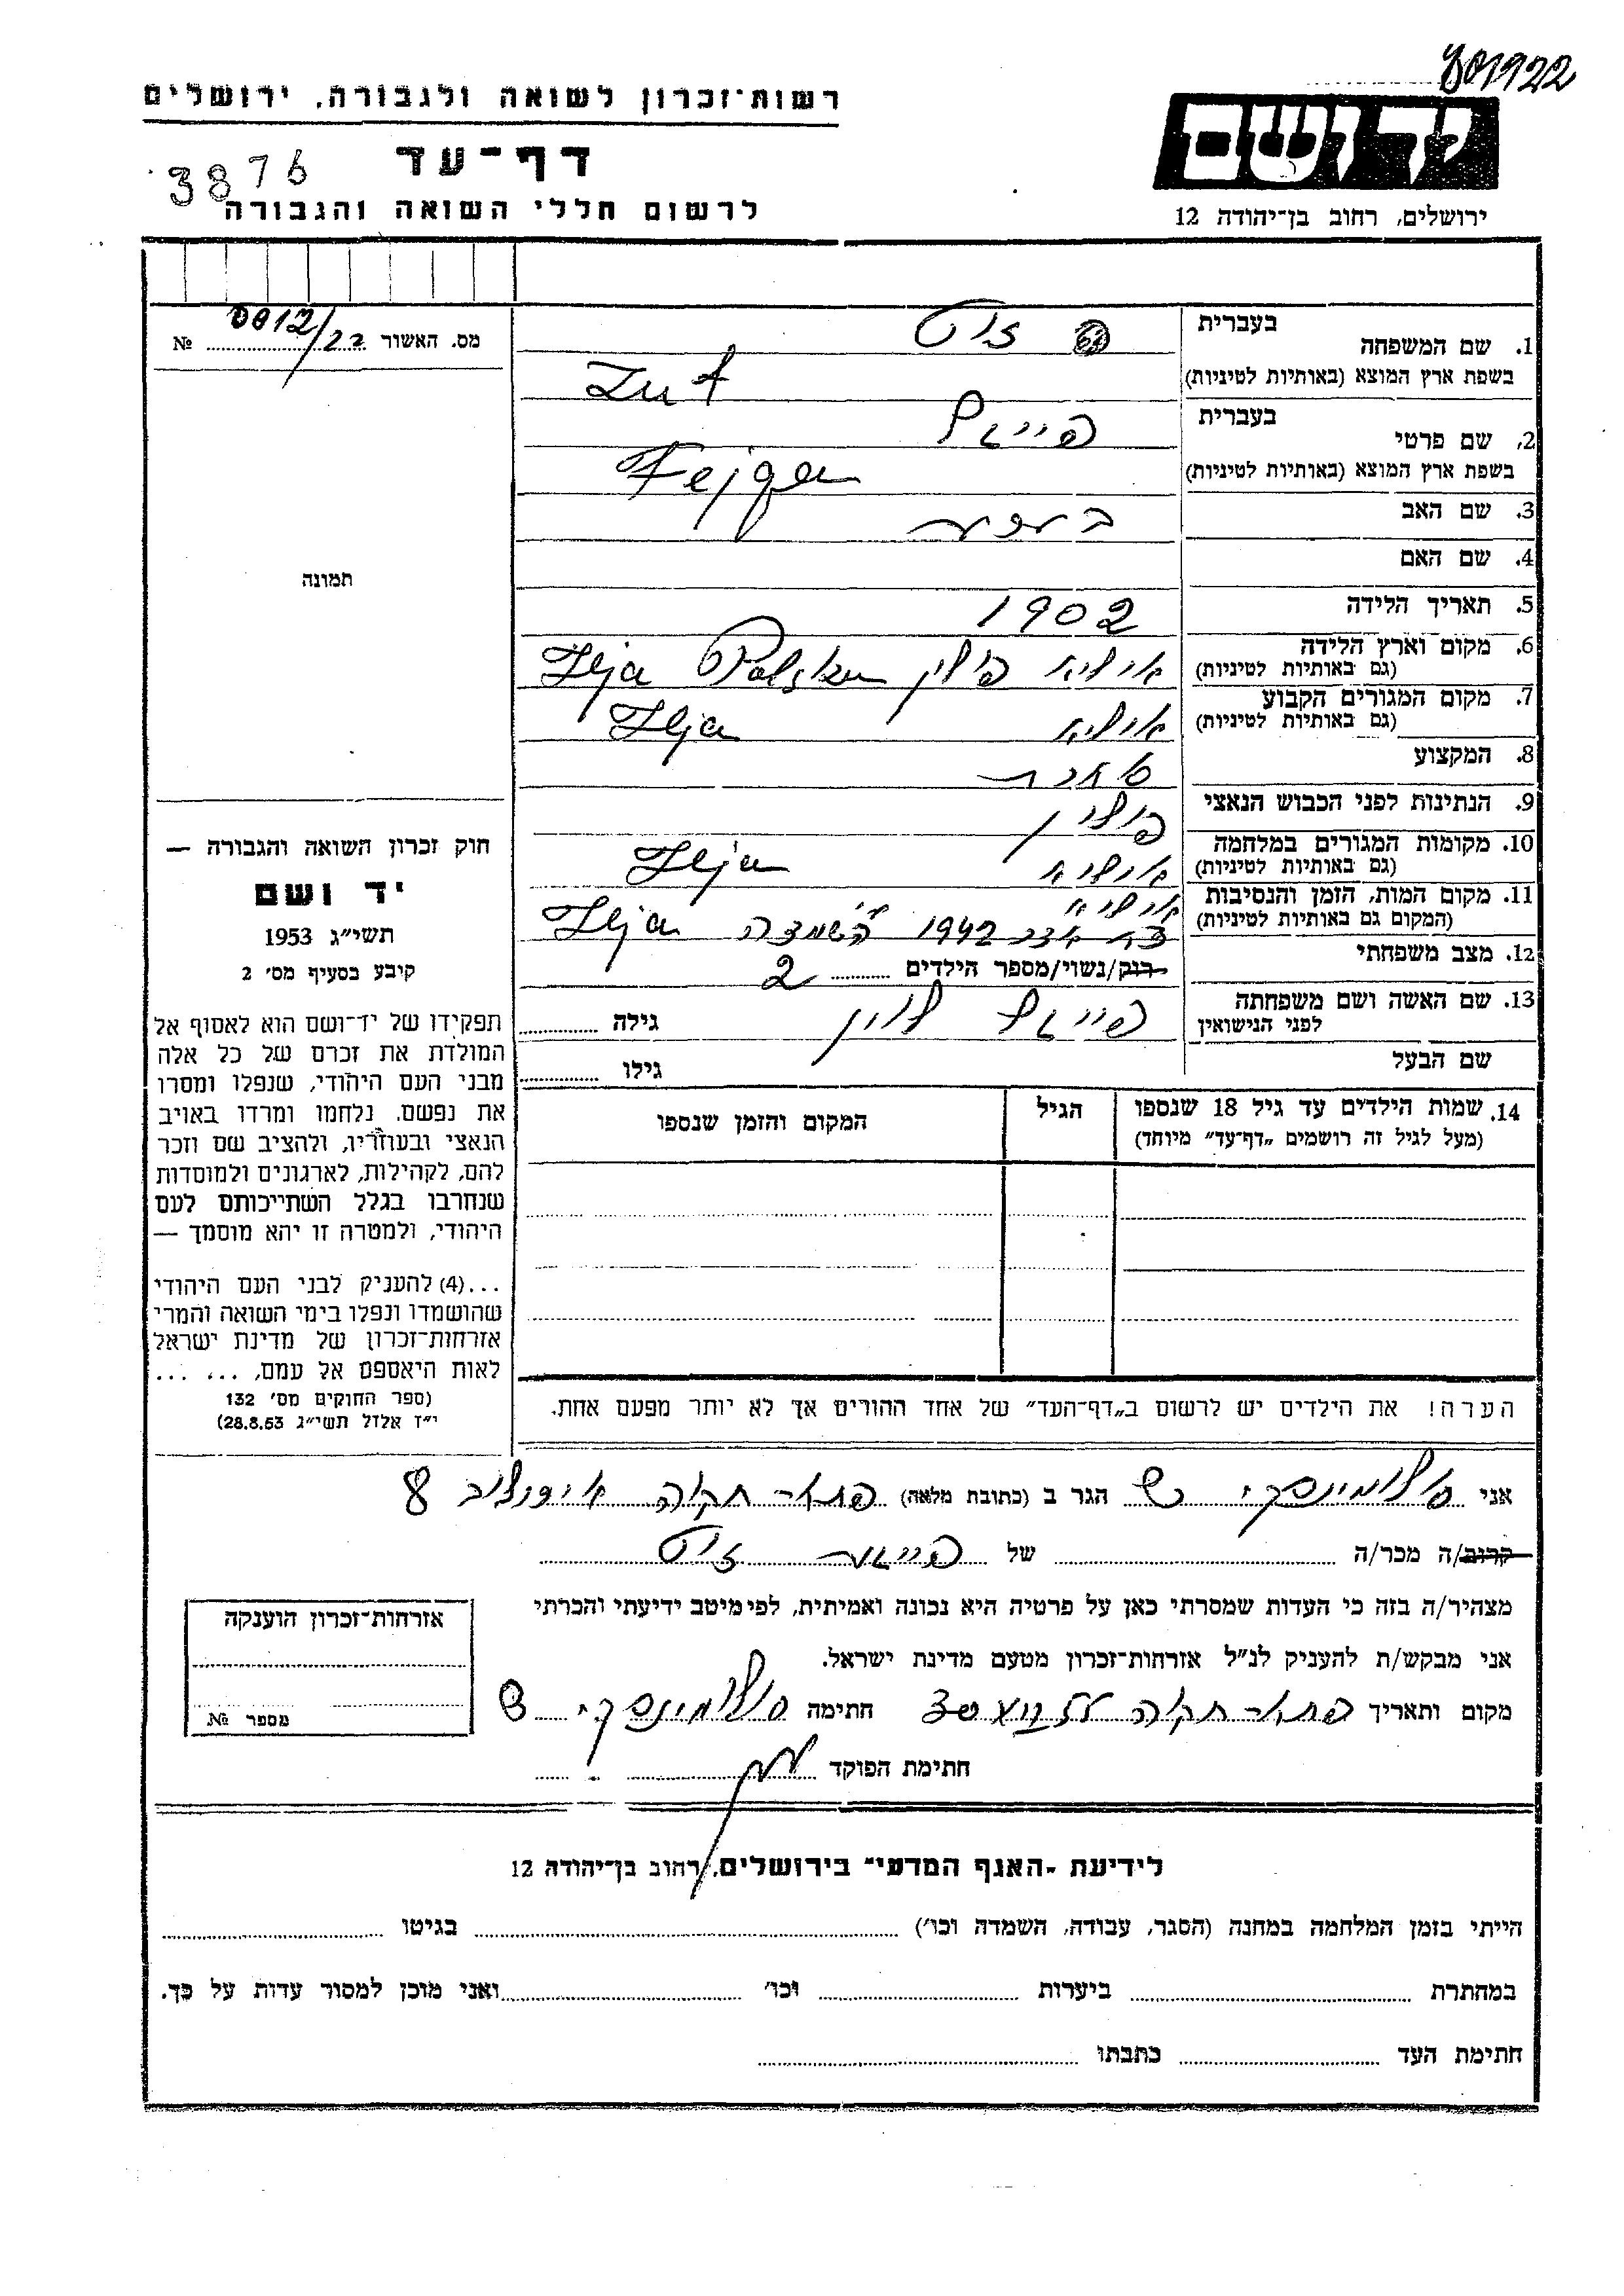 801922
רשות-זכרון לשואה ולגבורה, ירושלים
דף-עד
3876
לרשום חללי השואה והגבורה
יד ושם
ירושלים, רחוב בן-יהודה 12
מס. האשור 0012/22 №
תמונה
1. שם המשפחה
בעברית זוט
בשפת ארץ המוצא (באותיות לטיניות) Zut
2. שם פרטי
בעברית פייגל
בשפת ארץ המוצא (באותיות לטיניות) Fejga
3. שם האב
4. שם האם
5. תאריך הלידה 1902
6. מקום וארץ הלידה
(גם באותיות לטיניות) איליא פולין Ilja Polska
7. מקום המגורים הקבוע
(גם באותיות לטיניות) איליא Ilja
8. המקצוע
9. הנתינות לפני הכבוש הנאצי פולין
10. מקומות המגורים במלחמה
(גם באותיות לטיניות) איליא Ilja
11. מקום המות, הזמן והנסיבות איליא
(המקום גם באותיות לטיניות) אדר 1942 השמדה Ilja
12. מצב משפחתי רוק/נשוי/מספר הילדים 2
13. שם האשה ושם משפחתה
לפני הנישואין פייגל לוין גילה
שם הבעל גילו
14. שמות הילדים עד גיל 18 שנספו
(מעל לגיל זה רושמים „דף-עד" מיוחד)
הגיל
המקום והזמן שנספו
הערה! את הילדים יש לרשום ב„דף-העד" של אחד ההורים אך לא יותר מפעם אחת.
חוק זכרון השואה והגבורה —
יד ושם
תשי"ג 1953
קיבע בסעיף מס' 2
תפקידו של יד-ושם הוא לאסוף אל
המולדת את זכרם של כל אלה
מבני העם היהודי, שנפלו ומסרו
את נפשם, נלחמו ומרדו באויב
הנאצי ובעוזריו, ולהציב שם וזכר
להם, לקהילות, לארגונים ולמוסדות
שנחרבו בגלל השתייכותם לעם
היהודי, ולמטרה זו יהא מוסמך —
...(4) להעניק לבני העם היהודי
שהושמדו ונפלו בימי השואה והמרי
אזרחות-זכרון של מדינת ישראל
לאות היאספם אל עמם, ... ...
(ספר החוקים מס' 132
י"ז אלול תשי"ג 28.8.53)
אני סולומינסקי ש הגר ב (כתובת מלאה) פתח תקוה 8
קרוב/ה מכר/ה של פייגל זוט
מצהיר/ה בזה כי העדות שמסרתי כאן על פרטיה היא נכונה ואמיתית, לפי מיטב ידיעתי והכרתי
אני מבקש/ת להעניק לנ"ל אזרחות-זכרון מטעם מדינת ישראל.
מקום ותאריך פתח תקוה חתימה סולומינסקי ש
חתימת הפוקד
אזרחות-זכרון הוענקה
מספר №
לידיעת „האגף המדעי" בירושלים, רחוב בן-יהודה 12
הייתי בזמן המלחמה במחנה (הסגר, עבודה, השמדה וכו') בגיטו
במחתרת ביערות וכו' ואני מוכן למסור עדות על כך.
חתימת העד כתבתו